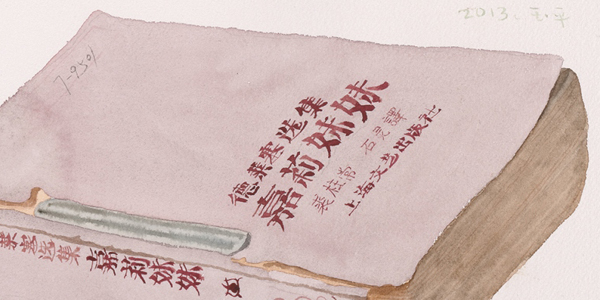 2013. 王.平
德莱塞选集
嘉莉妹妹
裘柱常 石灵譯
上海文艺出版社
莱塞选集 嘉莉妹妹